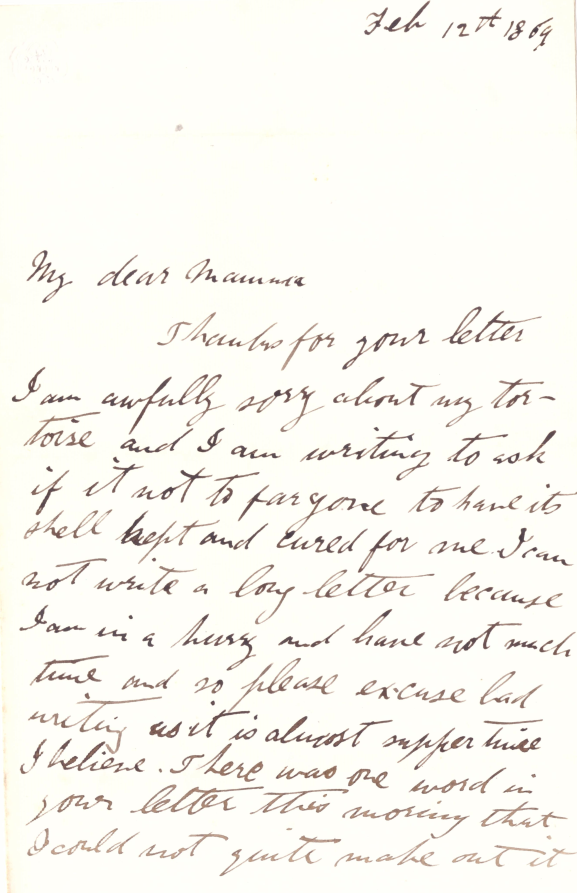 Feb 12th 1869
My dear Mamma
Thanks for your letter
I am awfully sorry about my tor-
toise and I am writing to ask
if it not to fargone to have its
shell kept and cured for me. I can
not write a long letter because
I am in a hurry and have not much
time and so please excuse bad
writing as it is almost supper time
I believe. There was one word in
your letter this moring that
I could not quite make out it